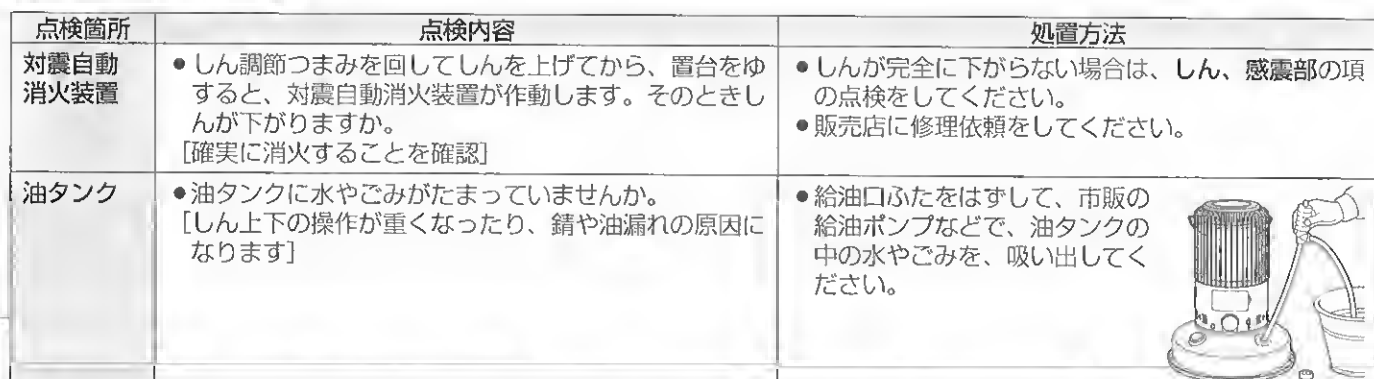 点検箇所 点検内容 処置方法
対震自動
消火装置
●しん調節つまみを回してしんを上げてから、置台をゆ
すると、対震自動消火装置が作動します。そのときし
んが下がりますか。
[確実に消火することを確認]
●しんが完全に下がらない場合は、しん、感震部の項
の点検をしてください。
●販売店に修理依頼をしてください。
油タンク
●油タンクに水やごみがたまっていませんか。
[しん上下の操作が重くなったり、錆や油漏れの原因に
なります]
●給油口ふたをはずして、市販の
給油ポンプなどで、油タンクの
中の水やごみを、吸い出してく
ださい。